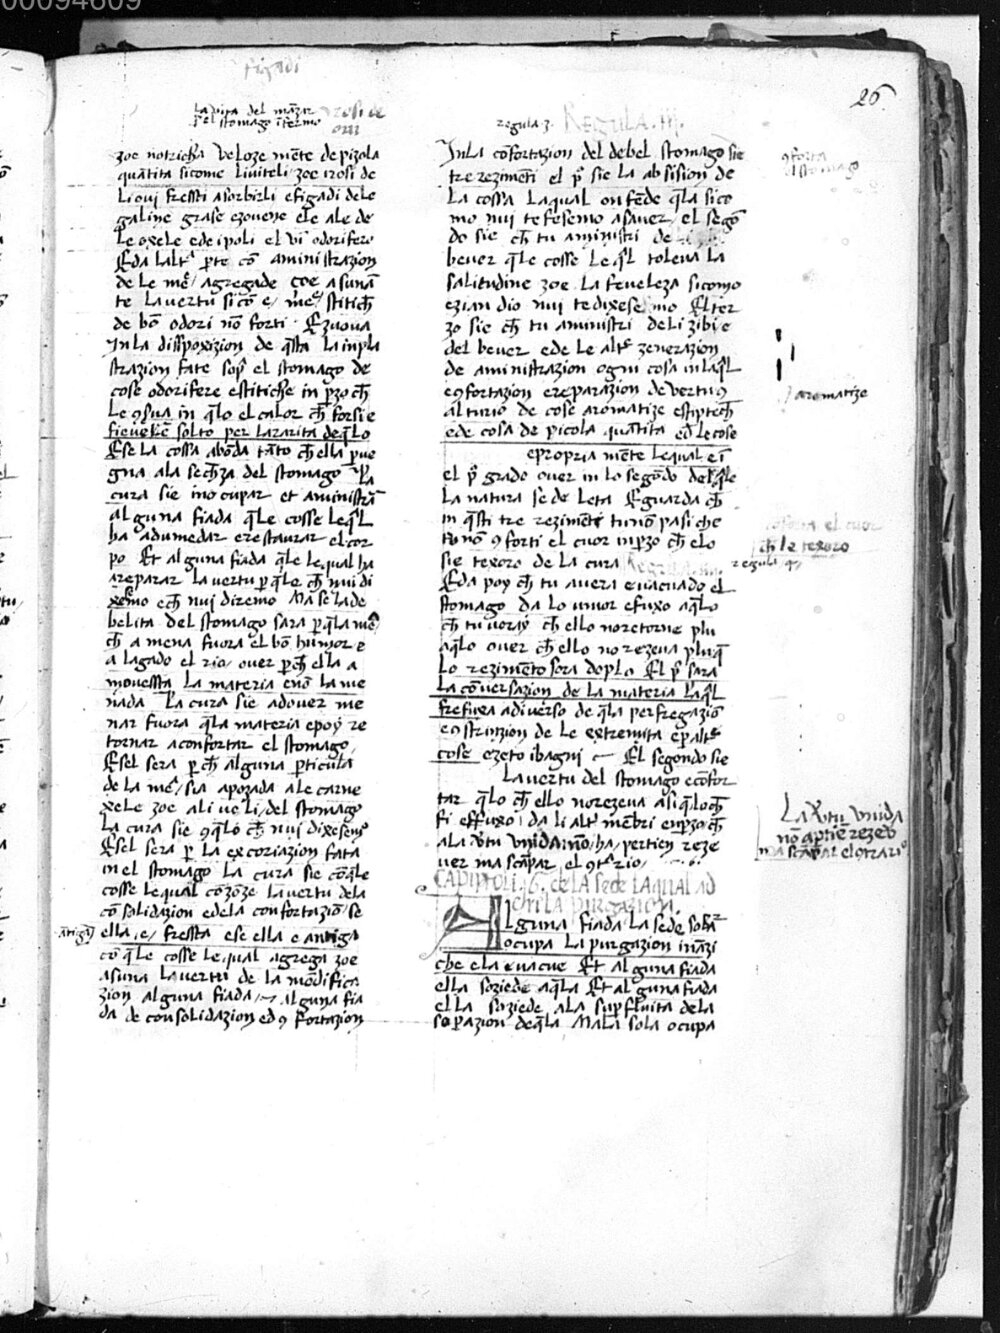 00094609
26
figadi
la vita del manzar
del stomago infermo
rosi de
ovi
zoe notricha veloze mēte de pizola
quātita sicome li viteli / zoe i rosi de
li ovi fresti asorbirli e figadi dele
galine grase e zovene e le ale de
le oxele e de i poli el vī odorifero
E da laltˢ p̄te cō aministrazion
de le mēˢ / agregade çoe asunā
te la vertu sicō e / mēˢ / stitich
de bō odori nō forti · E zuova
In la dispoxizion de q̄sta la inpla
strazion fate sop̄ el stomago de
cose odorifere e stitiche in p̄zo ch̄
le 9sua in q̄lo el calor ch̄ forsi e
fievele solto per la rarita de q̄lo
E se la cossa abōda tāto ch̄ ella p̄ue
gna ala sech̄za del stomago La
cura sie ino cupar et aministrā
al guna fiada q̄le cosse le q̄l
ha adumedar e restaurar el cor
po Et al guna fiada q̄le le qual ha
areparar la vertu p̄ q̄le ch̄ nui di
xemo e ch̄ nui diremo Ma se la de
belita del stomago sara p̄ q̄la mēˢ
ch̄ a mena fuora el bō humor e
a lagado el rio / over p̄ ch̄ ella a
movessta la materia e nō la me
nada La cura sie adover me
nar fuora q̄la materia e poy re
tornar a confortar el stomago /
E sel sera p̄ ch̄ alguna p̄ticula
de la mēˢ / sia apozada a le carne
xele zoe ali ve li / del stomago
La cura sie 9 q̄lo ch̄ nui dixesemo
E sel sera p̄ la excoriazion fata
in el stomago la cura sie cō q̄le
cosse le qual cōzōze la vertu dela
cō salidazion e dela confortaziō / se
antiga
ella / e / fressta e se ella e antiga
cō q̄le cosse le qual agrega zoe
asuna la vertu de la mōdifica
zion alguna fiada / alguna fia
da de consolidazion ed 9 fortazion
regula 3 · REGULA · III ·
In la cōfortazion del debel stomago sie
tre rezimenti el p̄ sie la ab sision de
la cossa la qual offēde q̄la sico
mo nui te fesemo asaver / el segō
do sie ch̄ tu aministri de
bever q̄le cosse le q̄l toleva la
salitudine zoe la feveleza sicomo
ezian dio nui te dixesemo El ter
zo sie ch̄ tu aministri de li zibi e
del bever e de le altˢ zenerazion
de aministrazion ogni cosa in la q̄l
e 9fortazion e reparazion de vertu 9
alturio de cose aromatize e stiptech̄
e de cosa de picola quātita ed le cose
e propria mēte le qual e ī
el p̄ grado over in lo segōdo de le q̄le
la natura se de leta E guarda ch̄
in q̄sti tre rezimēti tu nō pasi che
tu nō 9 forti el cuor in p̄zo ch̄ elo
sie texoro de la cura REGULA · IIII
E da poy ch̄ tu avera evacuado el
stomago da lo umor e fuxo a q̄lo
ch̄ tu voray ch̄ ello no retorne plu
a q̄lo over ch̄ ello no rezeva plu q̄
lo rezimēto sera doplo El p̄ sara
la cōversazion de la materia la q̄l
frefuxa adiverso de q̄la per fregaziō
e ostrinzion de le extremita e p̄ altˢ
cose e zeto i bagni El segondo sie
la vertu del stomago e cōfor
tar q̄lo ch̄ ello no rezeva asi q̄lo ch̄
fi effuxo / da li altˢ mēbri e in p̄zo ch̄
a la v̄tu unida nō / ha / pertien reze
ver ma scāpar el 9tˢrio /
CAPITOLI · 6 · de la sede la qual ad
A lguna fiada la sede sola
ocupa la purgazion inazi
che ela evacue Et al guna fiada
ella soziede a q̄la Et al guna fiada
ella soziede ala sup̄fluita dela
sop̄azion de q̄la Ma la sola ocupa
9forta
el stomago
aromatize
9forta el cuor
ch̄ le texoro
regula 4
La v̄tu unida
nō aptiē rezev̄
ma scāpar el 9trario